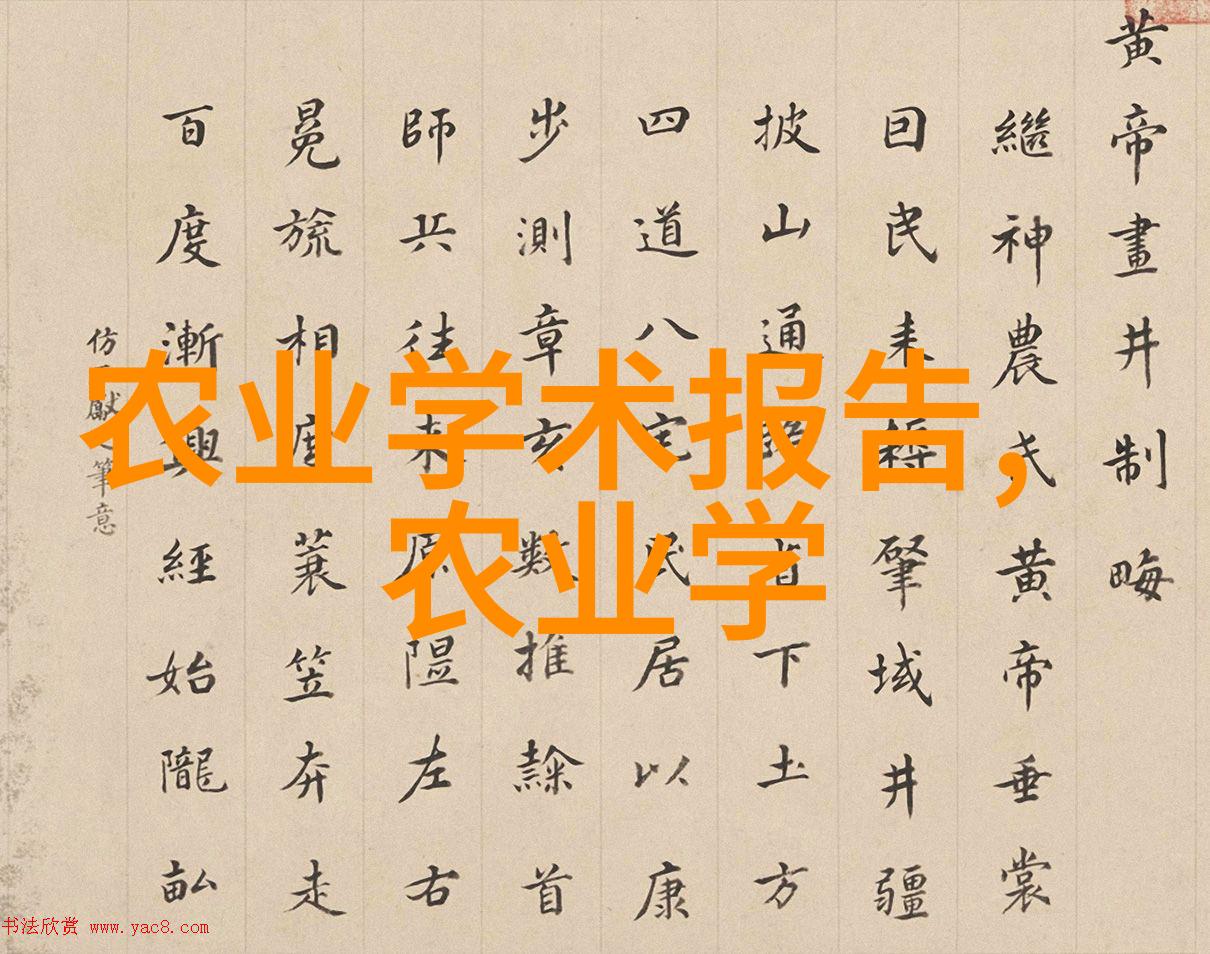 黄帝畫井制畮
繼神農氏黄帝垂裳
因民耒耨肇域井疆
披山通省下土方
四道八宅民居以康
步測章亥數推隸首
師兵往来原隰左右
冕旒相度蓑笠奔走
百度漸興經始隴畝
仿獻之筆意
农业学术报告,
农业学
书法欣赏 www.yac8.com